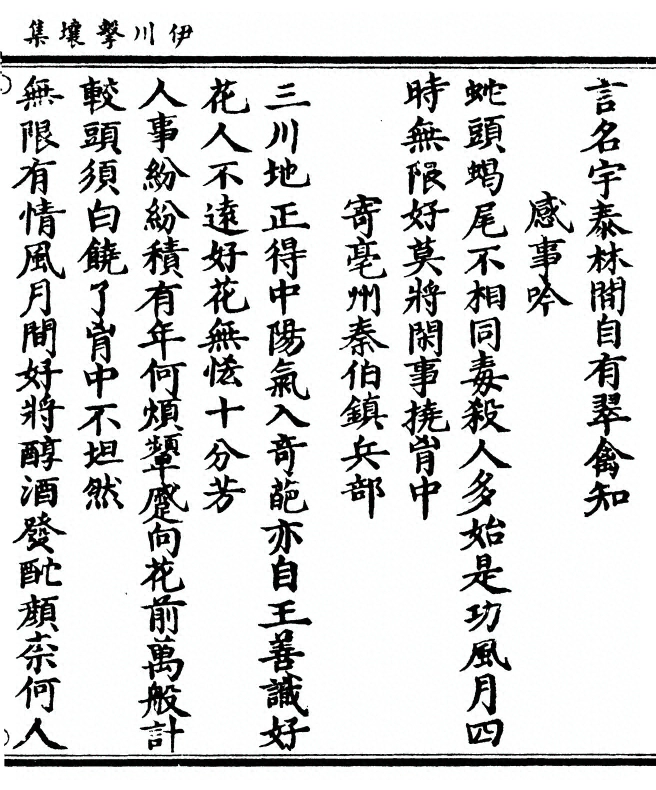 伊川擊壤集
言名宇泰林間自有翠禽知
感事吟
蛇頭蝎尾不相同毒殺人多始是功風月四
時無限好莫將閑事撓胷中
寄亳州秦伯鎮兵部
三川地正得中陽氣入竒葩亦自王善識好
花人不遠好花無恡十分芳
人事紛紛積有年何煩顰蹙向花前萬般計
較頭須白饒了胷中不坦然
無限有情風月間好將醇酒發酡顔柰何人